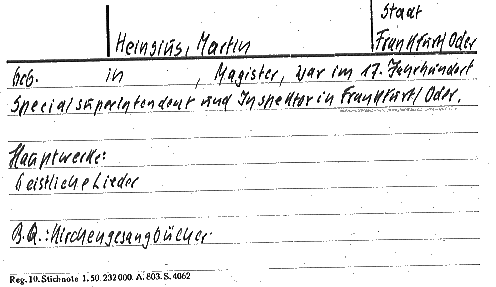 Stadt
Heinsius, Martin Frankfurt/Oder
Geb. in , Magister, war im 17. Jahrhundert
Specialsuperintendent und Inspektor in Frankfurt/Oder.
Hauptwerke:
Geistliche Lieder
B.Q.: Kirchengesangbücher
Reg. 10. Stichnote 1. 50. 232000. A. 803. S. 4062